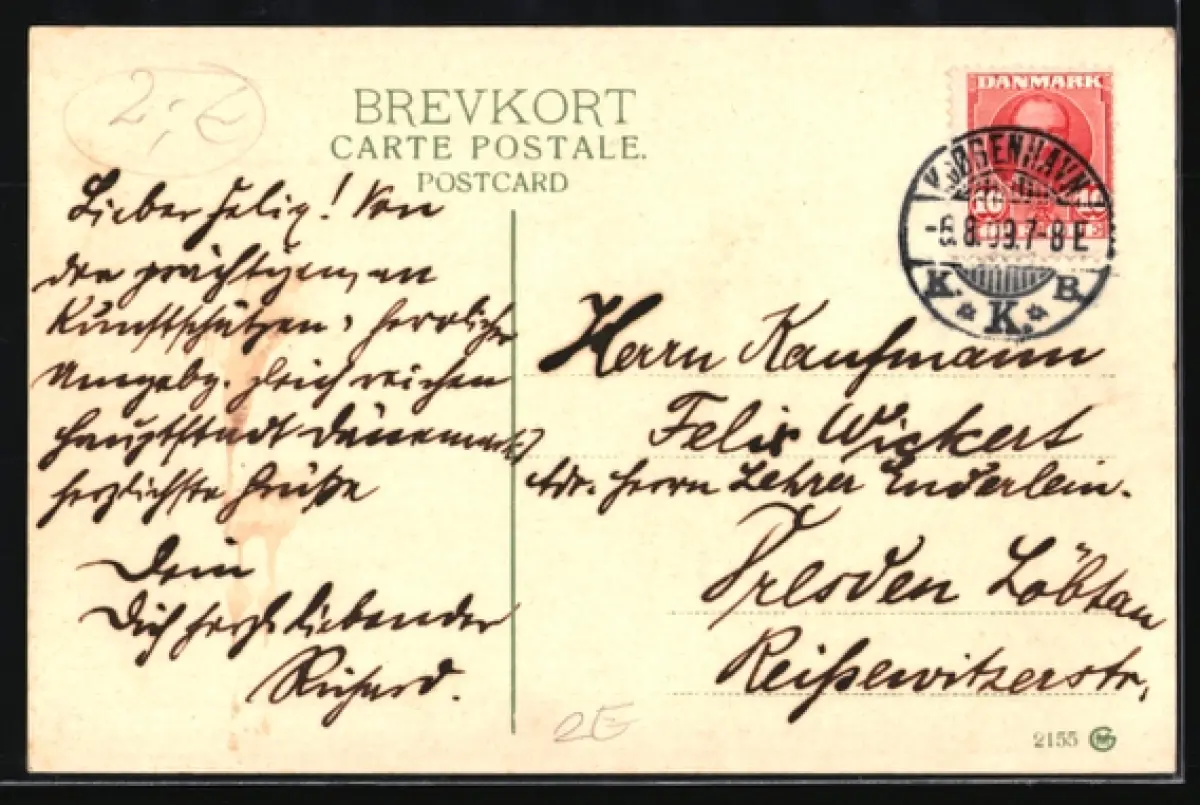 2,-E
BREVKORT
CARTE POSTALE.
POSTCARD
DANMARK
10 10
KJØBENHAVN
8.09.7-8E
K. K. B.
Lieber Felix! Von
der prächtigen, an
Kunstschätzen, herrlicher
Umgebg. gleich reichen
Hauptstadt Dänemarks
herzlichste Grüße
Dein
Dich herzl. liebender
Richard.
Herrn Kaufmann
Felix Wickert
Adr. Herrn Lehrer Enderlein.
Dresden Löbtau
Reißewitzerstr.
2E
2155